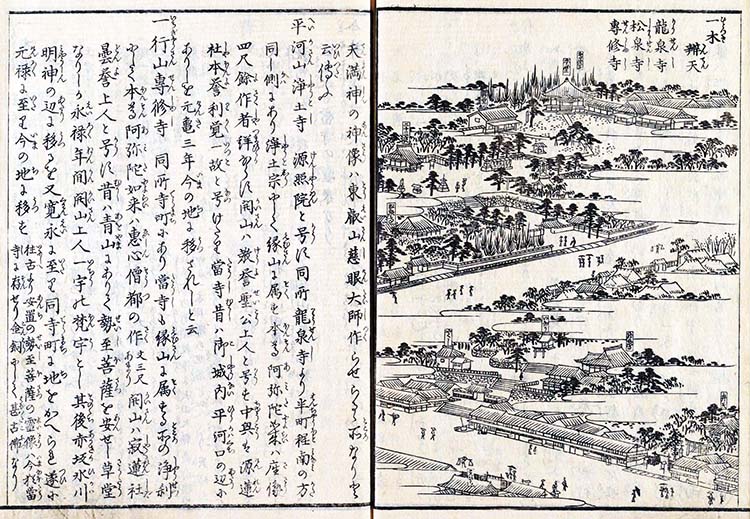 一木
辨天
龍泉寺
松泉寺
專修寺
天満神の神像ハ東叡山慈眼大師作らせらるゝ所なりと
云傳ふ
平河山浄土寺 源照院と号す同所龍泉寺より半町程南の方
同し側にあり浄土宗にして縁山に属す本尊阿弥陀如来ハ座像
四尺餘作者詳ならす開山ハ教誉霊公上人と号す中興を源蓮
社本誉利覚一故と号けたり當寺昔ハ御城内平河口の辺に
ありしを元亀三年今の地に移されしと云
一行山專修寺 同所寺町にあり當寺も縁山に属する所の浄刹
にして本尊阿弥陀如来ハ恵心僧都の作丈三尺開山ハ寂蓮社
曇誉上人と号す昔ハ青山にありて勢至菩薩を安せし草堂
なりしか永禄年間開山上人一宇の梵宇とし其後赤坂氷川
明神の辺に移る又寛永に至り同寺町に地をかへられ遂に
元禄に至り今の地に移る
往古より安置の勢至菩薩の霊像今猶當
寺に存せり金剛にして甚古佛なり